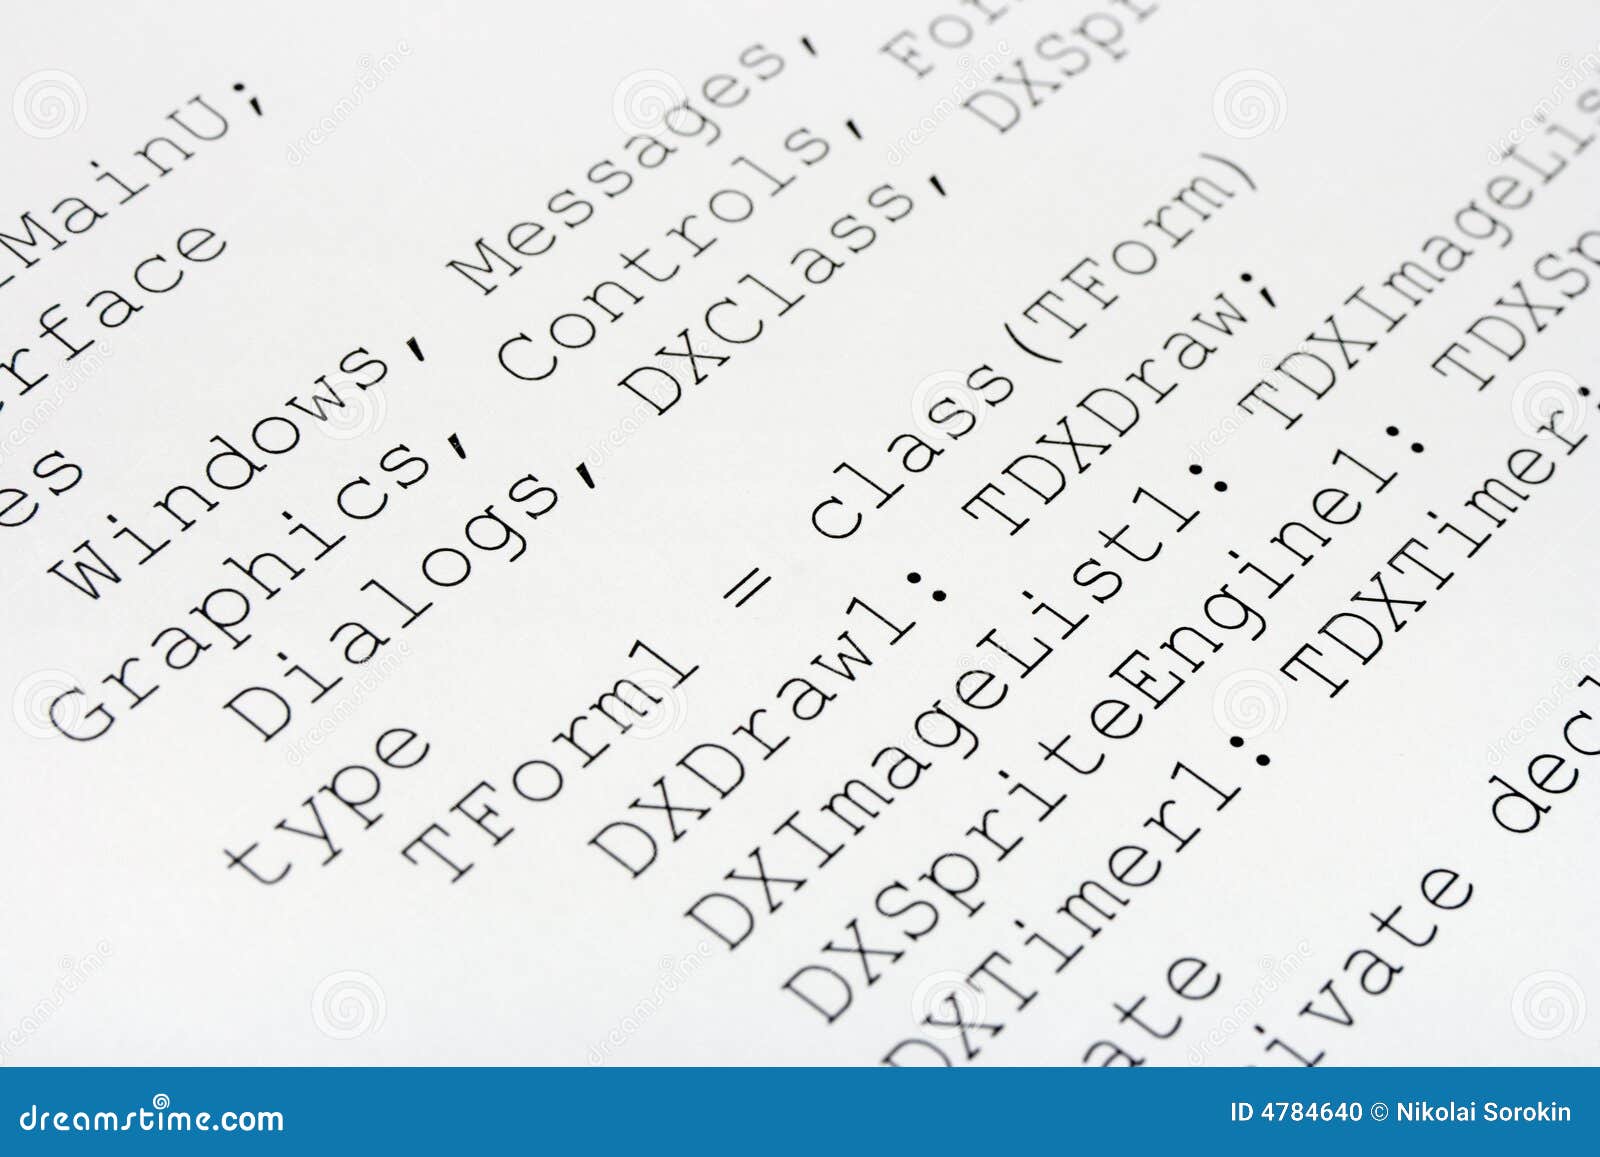 MainU;
rface
es
Windows, Messages,
Graphics, Controls, For
Dialogs, DXClass, DXSpr
type
TForm1 = class(TForm)
DXDraw1: TDXDraw;
DXImageList1: TDXImageLis
DXSpriteEngine1: TDXSp
DXTimer1: TDXTimer;
ate
ivate decl
dreamstime.com
ID 4784640 © Nikolai Sorokin